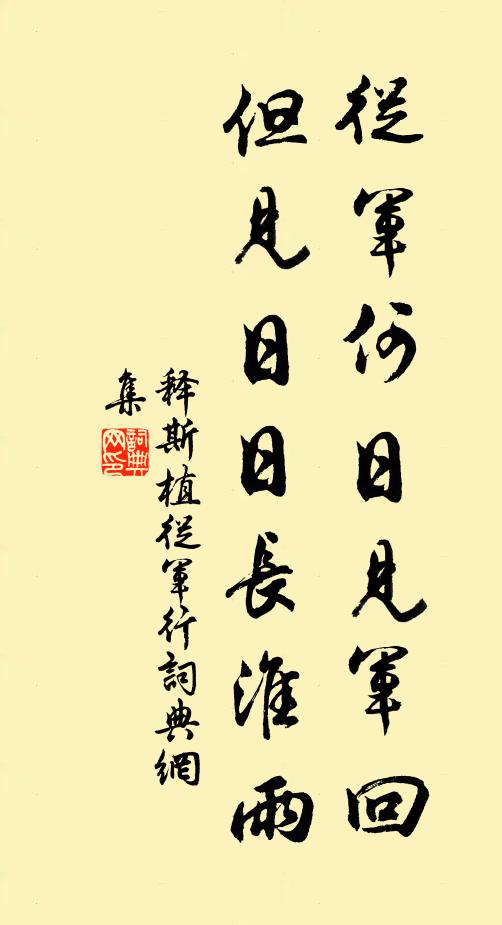 從軍何日見軍回
但見日日長淮雨
释斯植從軍行詞典網
集
詞典网印